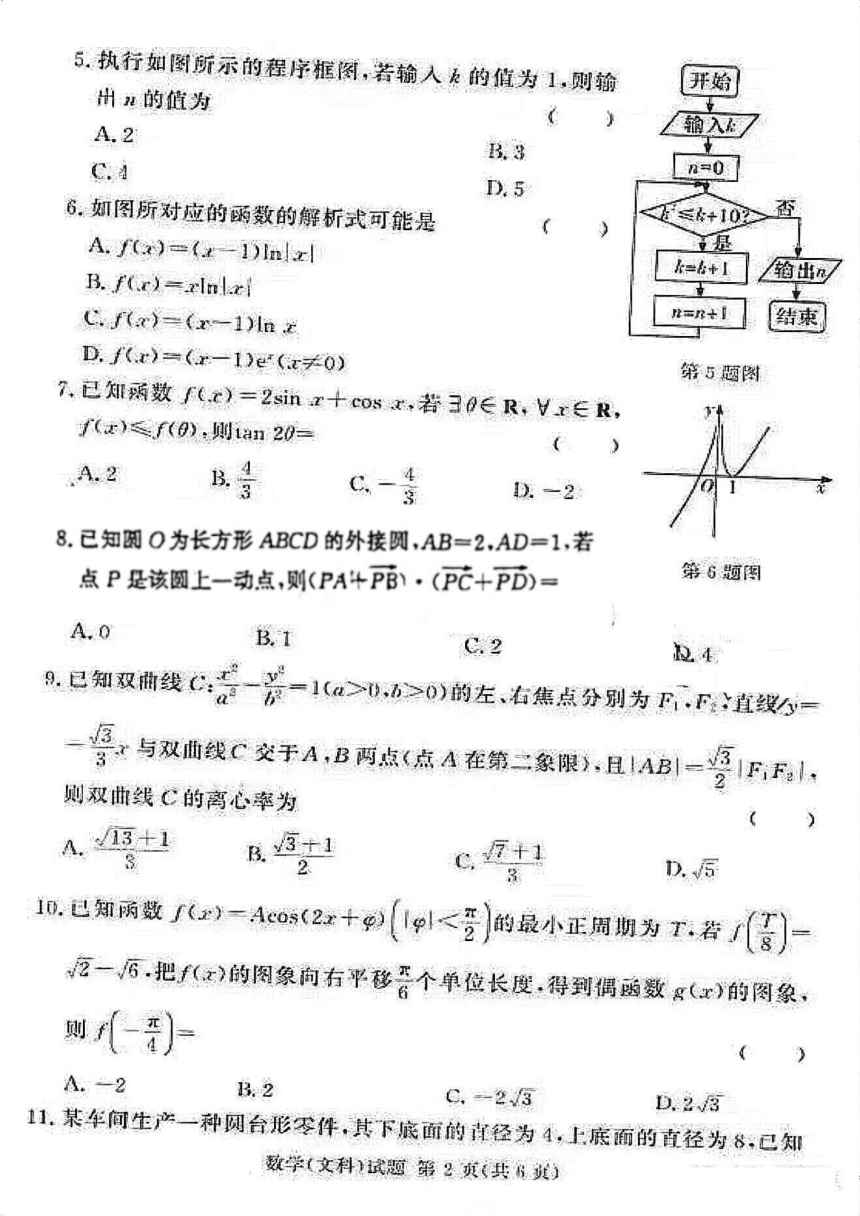 5.执行如图所示的程序框图,若输入k的值为1,则输
出n的值为 ( )
A.2 B.3
C.4 D.5
开始
输入k
n=0
k²≤k+10?
否
是
k=k+1
输出n
n=n+1
结束
第5题图
6.如图所对应的函数的解析式可能是 ( )
A.f(x)=(x-1)ln|x|
B.f(x)=xln|x|
C.f(x)=(x-1)ln x
D.f(x)=(x-1)eˣ(x≠0)
y
O 1 x
第6题图
7.已知函数f(x)=2sin x+cos x,若∃θ∈R,∀x∈R,
f(x)≤f(θ),则tan 2θ= ( )
A.2 B.4/3 C.-4/3 D.-2
8.已知圆O为长方形ABCD的外接圆,AB=2,AD=1,若
点P是该圆上一动点,则(PA+PB)·(PC+PD)=
A.0 B.1 C.2 D.4
9.已知双曲线C:x²/a²-y²/b²=1(a>0,b>0)的左、右焦点分别为F₁,F₂,直线y=
-√3/3x与双曲线C交于A,B两点(点A在第二象限),且|AB|=√3/2|F₁F₂|,
则双曲线C的离心率为 ( )
A.(√13+1)/3 B.(√3+1)/2 C.(√7+1)/3 D.√5
10.已知函数f(x)=Acos(2x+φ)(|φ|<π/2)的最小正周期为T,若f(T/8)=
√2-√6,把f(x)的图象向右平移π/6个单位长度,得到偶函数g(x)的图象,
则f(-π/4)= ( )
A.-2 B.2 C.-2√3 D.2√3
11.某车间生产一种圆台形零件,其下底面的直径为4,上底面的直径为8,已知
数学(文科)试题 第2页(共6页)